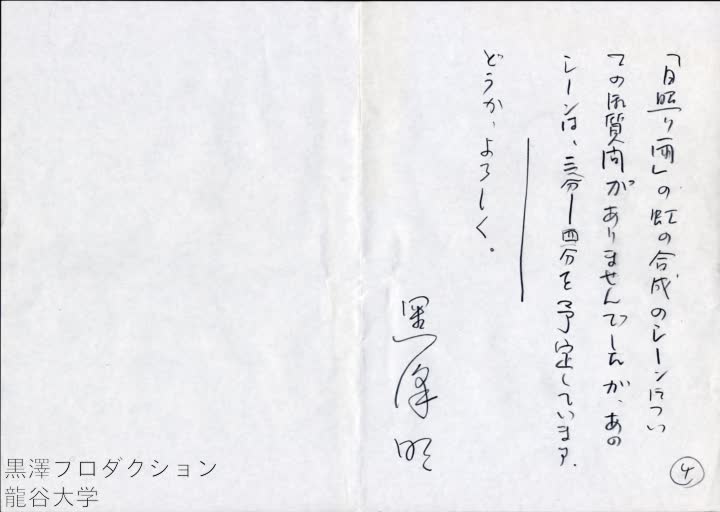 「日照り雨」の虹の合成のシーンについ
ての御質問がありませんでしたが、あの
シーンは、三分―四分を予定しています。
どうか、よろしく。
黒澤明
4
黒澤プロダクション
龍谷大学